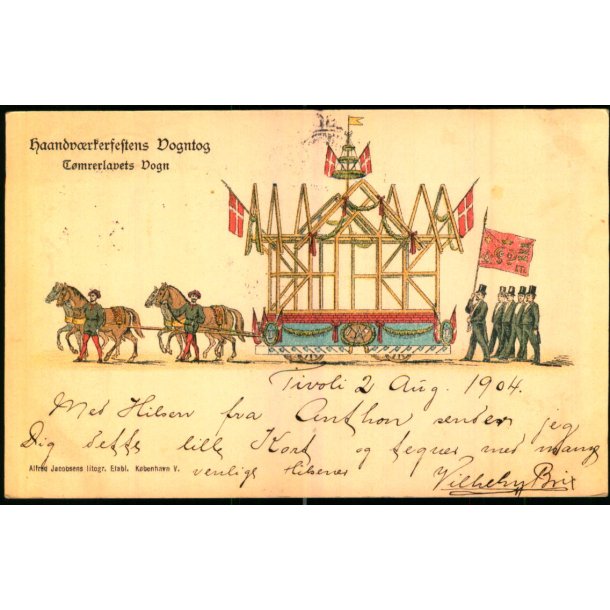 Haandværkerfestens Vogntog
Tømrerlavets Vogn
Tivoli 2 Aug. 1904.
Med Hilsen fra Anthon sender jeg
Dig dette lille Kort og tegner med mange
venlige Hilsener
Alfred Jacobsens litogr. Etabl. København V.
Vilhelm Brix